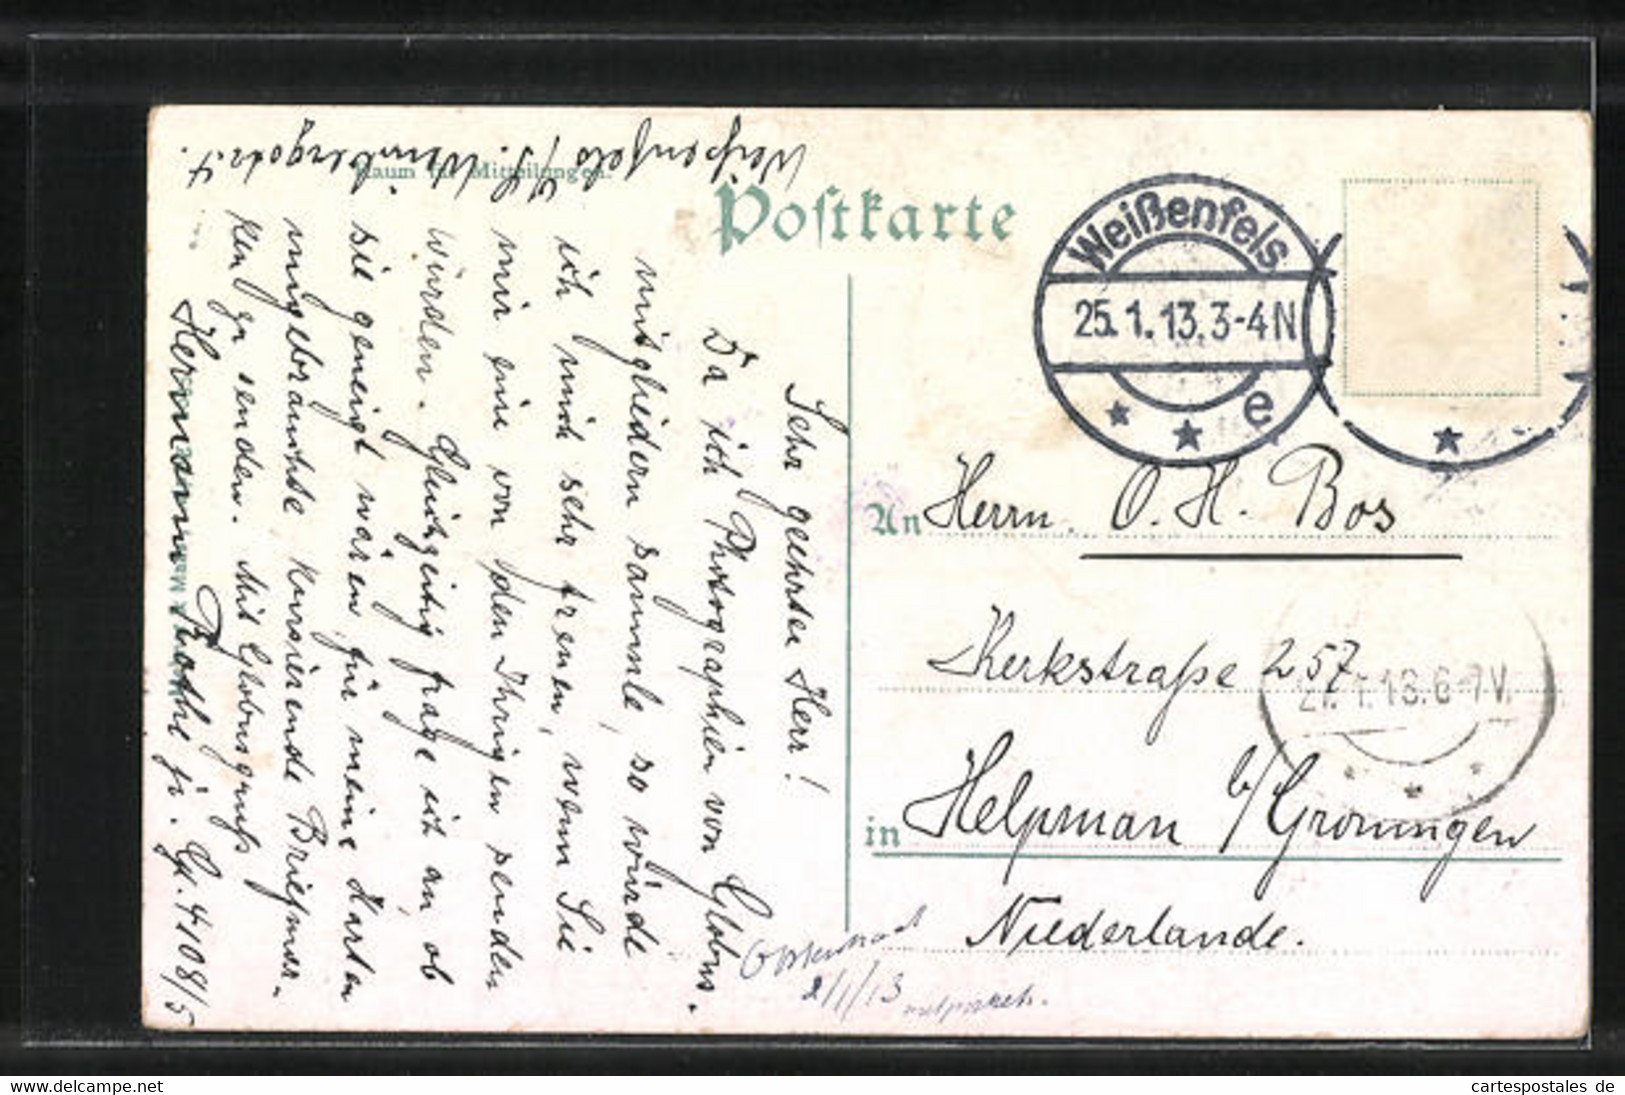 Postkarte
Raum für Mitteilungen.
Weißenfels a/S. Weinbergstr. 4.
Sehr geehrter Herr!
Da ich Photographien von Globus-
mitgliedern sammle, so würde
ich mich sehr freuen, wenn Sie
mir eine von den Ihrigen senden
würden. Gleichzeitig frage ich an, ob
sie geneigt wären für meine Karten
ungebrauchte kursierende Briefmar-
ken zu senden. Mit Globusgruß
Hermann Trothe jr. Gl. 4108/5
Weißenfels
25.1.13.3-4N
e
An Herrn O. H. Bos
Kerkstraße 257
27.1.13.6-7V.
in Helpman b/Groningen
Niederlande.
2/1/13
cartespostales de